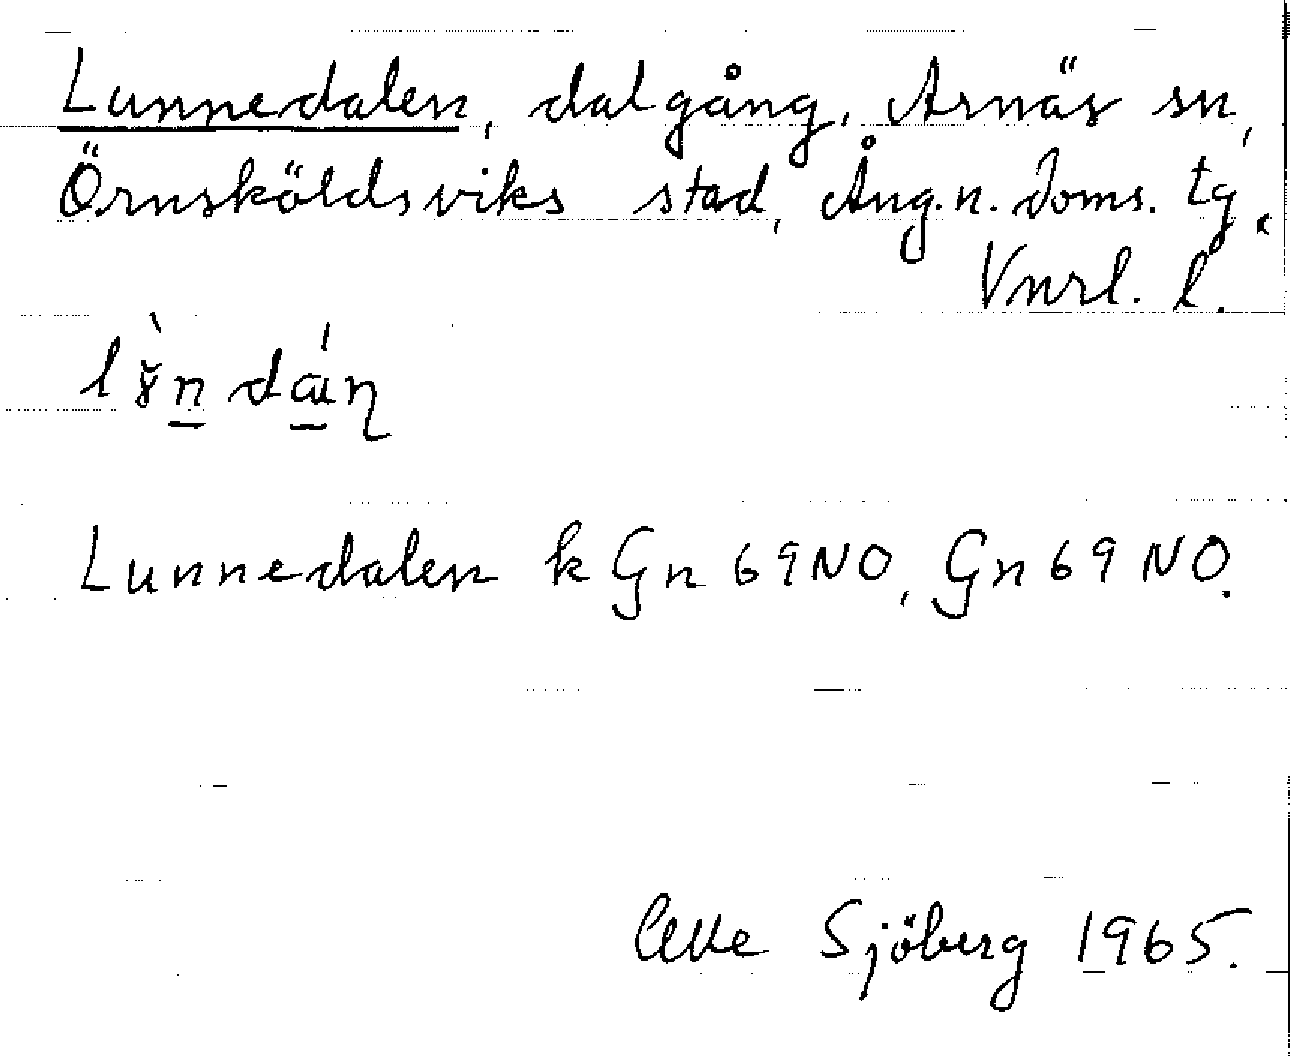 Lunnedalen, dalgång, Arnäs sn,
Örnsköldsviks stad, Ång.n. doms. tg.
Vnrl. l.
Lunnedalen k Gn 69 NO, Gn 69 NO.
Sjöberg 1965.